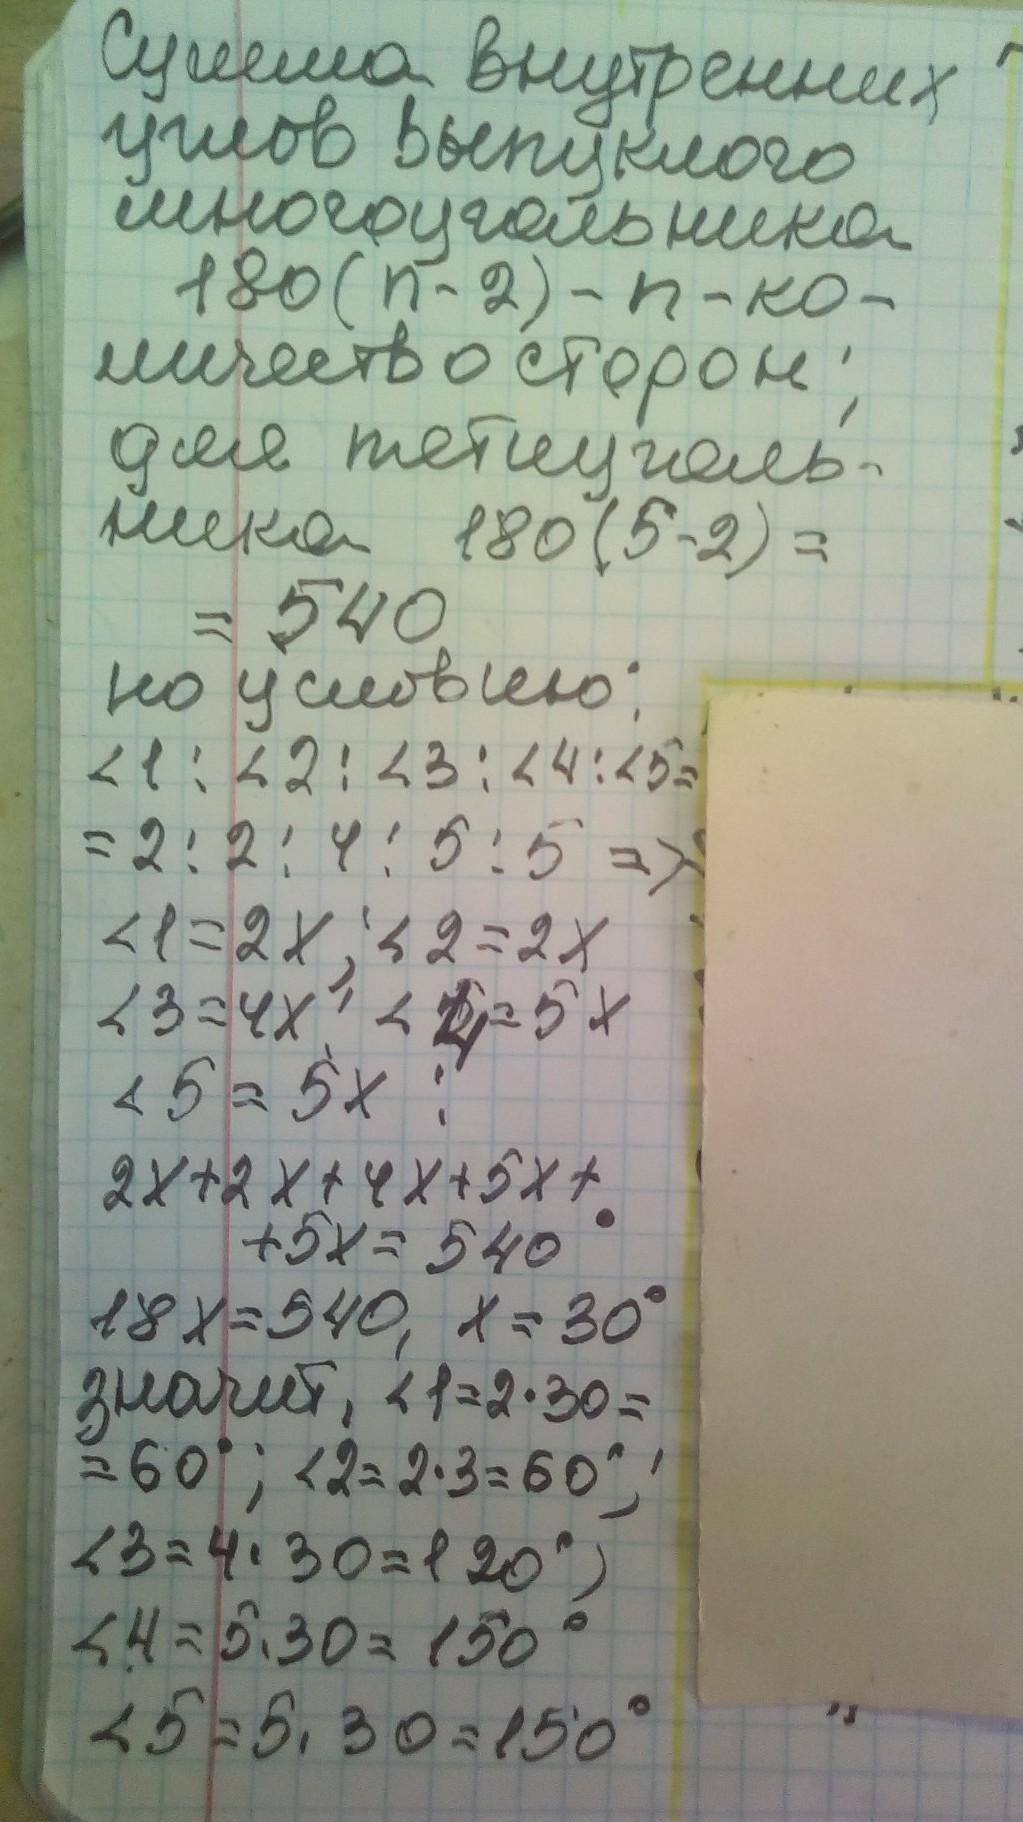 Сумма внутренних
углов выпуклого
многоугольника
180(n-2) - n - ко-
личество сторон;
для пятиуголь-
ника 180(5-2)=
= 540
по условию:
∠1:∠2:∠3:∠4:∠5=
=2:2:4:5:5 =>
∠1=2x; ∠2=2x
∠3=4x; ∠4=5x
∠5=5x;
2x+2x+4x+5x+
+5x=540°
18x=540, x=30°
значит, ∠1=2·30=
=60°; ∠2=2·3=60°;
∠3=4·30=120°;
∠4=5·30=150°
∠5=5·30=150°